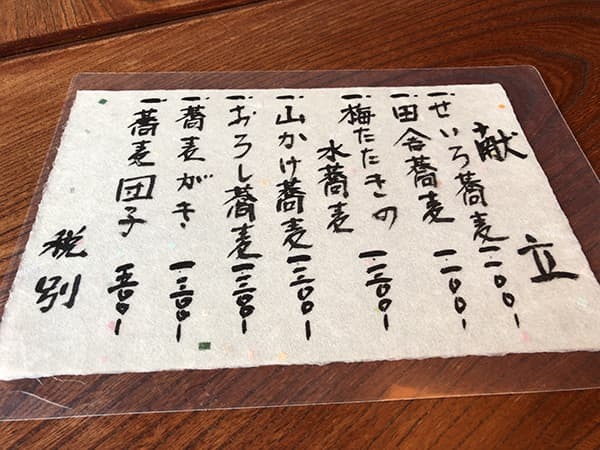 献立
一、せいろ蕎麦 一、一〇〇ー
一、田舎蕎麦 一、二〇〇ー
一、梅たたきの
水蕎麦 一、三〇〇ー
一、山かけ蕎麦 一、三〇〇ー
一、おろし蕎麦 一、三〇〇ー
一、蕎麦がき 一、三〇〇ー
一、蕎麦団子 五〇〇ー
税別